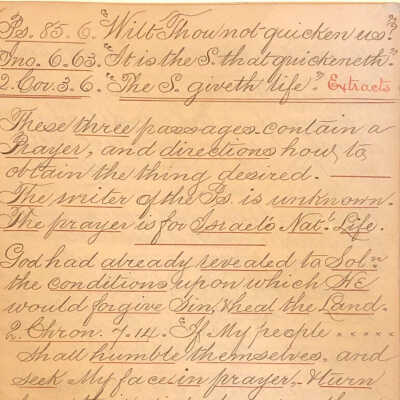 Ps. 85. 6. "Wilt Thou not quicken us."?
Jno. 6. 63. "It is the S. that quickeneth."
2. Cor. 3. 6 "The S. giveth life." Extracts
These three passages contain a
Prayer, and directions how to
obtain the thing desired.
The writer of the Ps. is unknown.
The prayer is for Israel's Nat'l Life.
God had already revealed to Soln
the conditions upon which HE
would forgive Sin, & heal the Land.
2. Chron. 7. 14. "If My people .....
shall humble themselves, and
seek My face in prayer, & turn